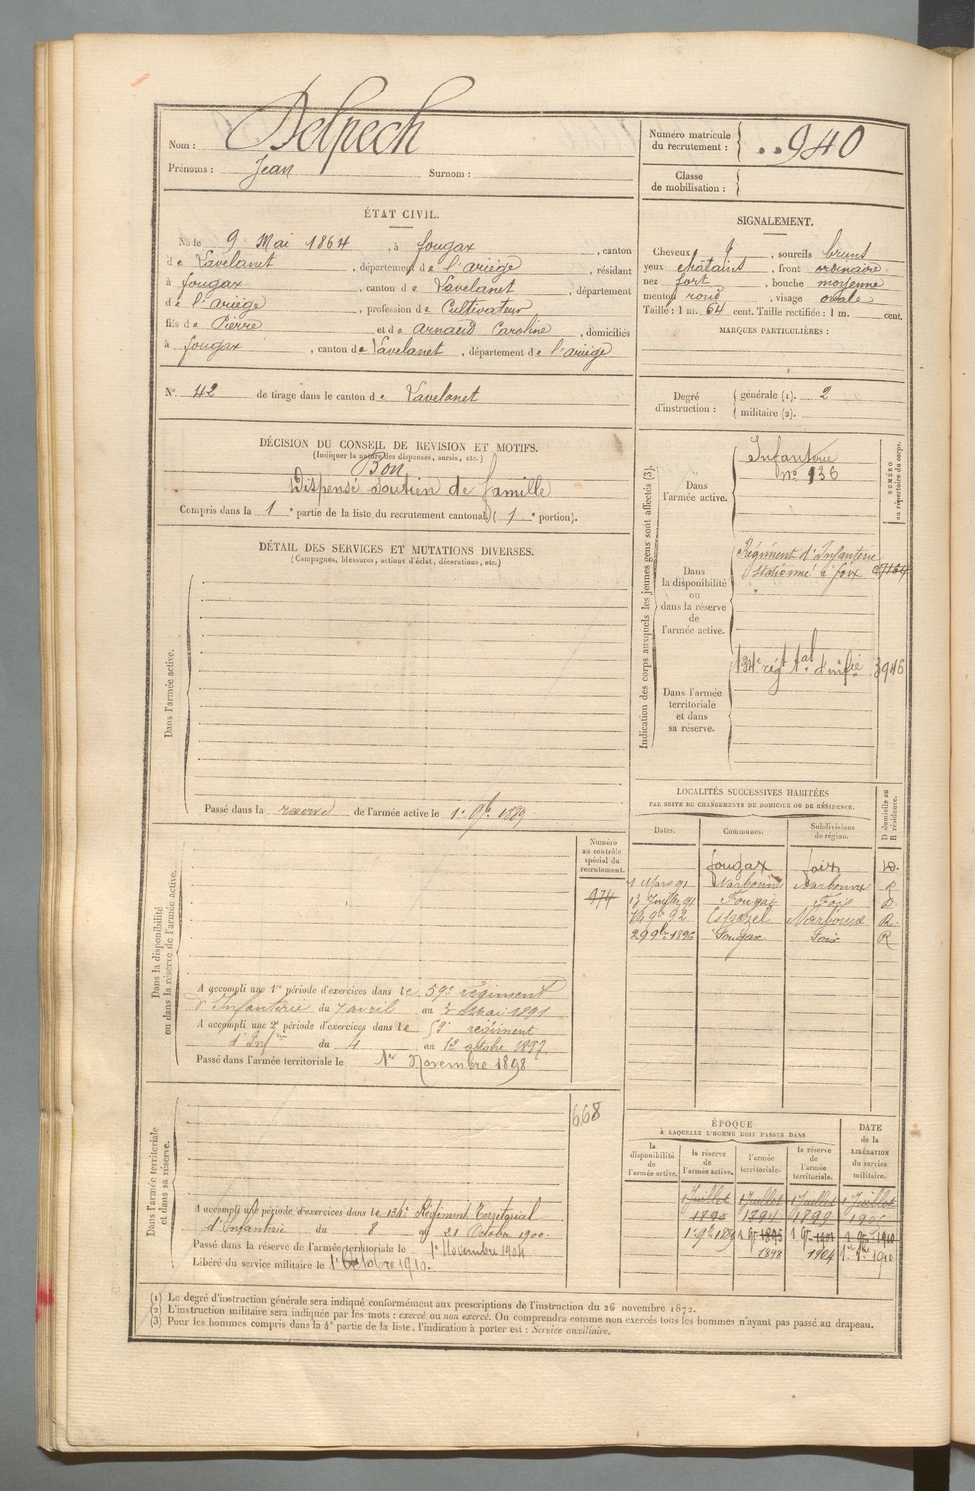 Nom : Delpech
Prénoms : Jean Surnom :
Numéro matricule du recrutement : 940
Classe de mobilisation :
ÉTAT CIVIL.
Né le 9 Mai 1864, à fougax, canton
de Lavelanet, département de l'ariège, résidant
à fougax, canton de Lavelanet, département
de l'ariège, profession de Cultivateur
fils de Pierre et de arnaud Caroline, domiciliés
à fougax, canton de Lavelanet, département de l'ariège
N° 42 de tirage dans le canton de Lavelanet
SIGNALEMENT.
Cheveux, sourcils bruns
yeux chatains, front ordinaire
nez fort, bouche moyenne
menton rond, visage ovale
Taille : 1 m. 64 cent. Taille rectifiée : 1 m. cent.
MARQUES PARTICULIÈRES :
Degré d'instruction : générale (1). 2
militaire (2).
DÉCISION DU CONSEIL DE REVISION ET MOTIFS.
(Indiquer la nature des dispenses, sursis, etc.)
Bon
Dispensé Soutien de famille
Compris dans la 1e partie de la liste du recrutement cantonal (1e portion).
DÉTAIL DES SERVICES ET MUTATIONS DIVERSES.
(Campagnes, blessures, actions d'éclat, décorations, etc.)
Dans l'armée active.
Passé dans la reserve de l'armée active le 1er 9bre 1889
Indication des corps auxquels les jeunes gens sont affectés (3).
NUMÉRO au répertoire du corps.
Dans l'armée active.
Infanterie
n° 136
Dans la disponibilité ou dans la réserve de l'armée active.
Régiment d'Infanterie
stationné à foix
Dans l'armée territoriale et dans sa réserve.
134e régt tal d'infie 3946
LOCALITÉS SUCCESSIVES HABITÉES
PAR SUITE DE CHANGEMENTS DE DOMICILE OU DE RÉSIDENCE.
Dates. Communes. Subdivisions de région. D domicile ou R résidence.
fougax foix D.
1 Mars 91 Narbonne Narbonne R
17 Juillet 91 Fougax Foix D
14 9b 92 Narbonne R.
29 9bre 1896 Fougax Foix R
Dans la disponibilité ou dans la réserve de l'armée active.
Numéro au contrôle spécial du recrutement.
974
A accompli une 1re période d'exercices dans le 59e régiment
d'Infanterie du 7 avril au 4 mai 1891
A accompli une 2e période d'exercices dans le 59e régiment
d'Infrie du 4 au 12 octobre 1897.
Passé dans l'armée territoriale le 1er Novembre 1898
Dans l'armée territoriale et dans sa réserve.
668
A accompli une période d'exercices dans le 134e Régiment Territorial
d'Infanterie du 8 au 21 Octobre 1900.
Passé dans la réserve de l'armée territoriale le 1er Novembre 1904
Libéré du service militaire le 1er Octobre 1910.
ÉPOQUE
À LAQUELLE L'HOMME DOIT PASSER DANS
DATE de la LIBÉRATION du service militaire.
la disponibilité de l'armée active. la réserve de l'armée active. l'armée territoriale. la réserve de l'armée territoriale.
1 Juillet 1 Juillet 1 Juillet 1 Juillet
1890 1894 1899 1905
1er 9bre 1889 1 9bre 1895 1 9bre 1901 1 9bre 1910
1898 1904 1er 8bre 1910
(1) Le degré d'instruction générale sera indiqué conformément aux prescriptions de l'instruction du 26 novembre 1872.
(2) L'instruction militaire sera indiquée par les mots : exercé ou non exercé. On comprendra comme non exercés tous les hommes n'ayant pas passé au drapeau.
(3) Pour les hommes compris dans la 4e partie de la liste, l'indication à porter est : Service auxiliaire.